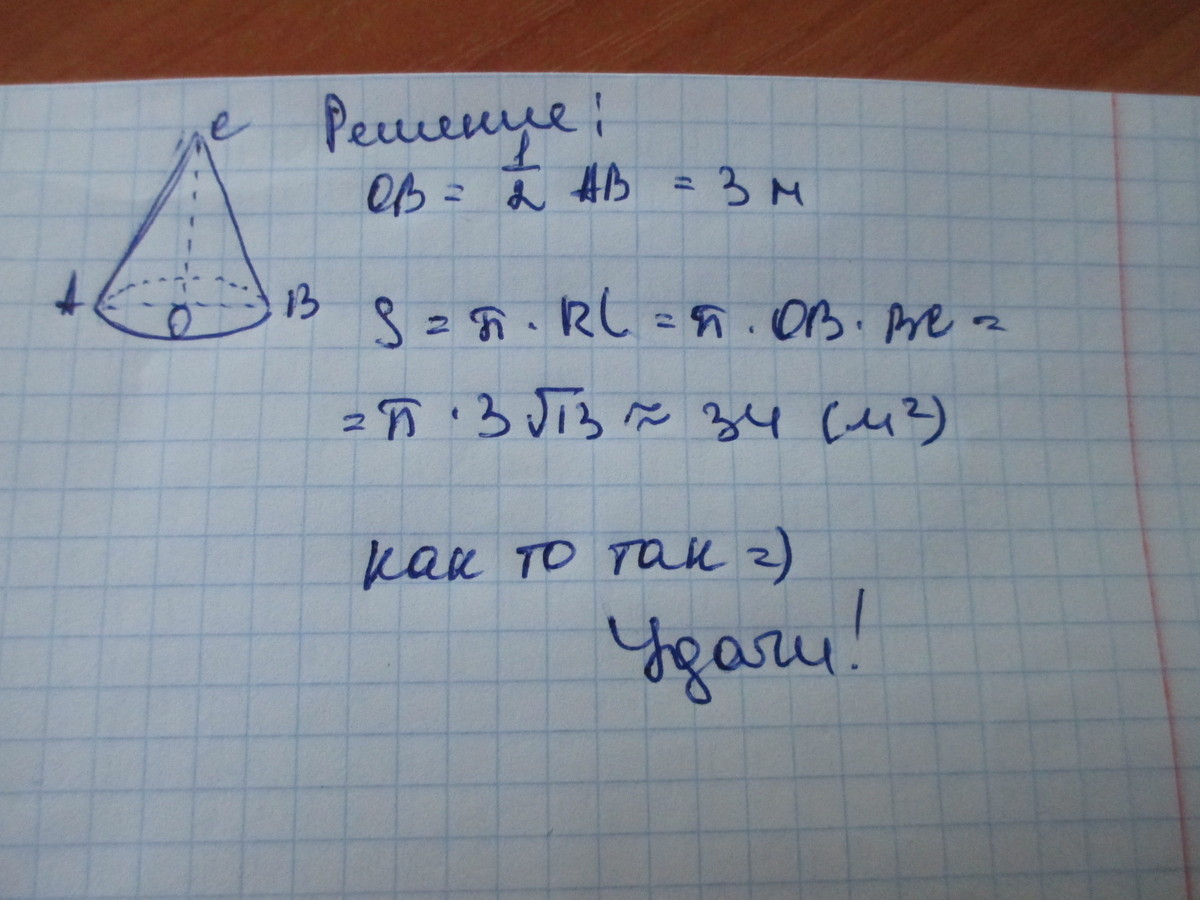 C
A
O
B
Решение:
OB = 1/2 AB = 3 м
S = π · Rl = π · OB · BC =
= π · 3 √13 ≈ 34 (м²)
как то так =)
Удачи!